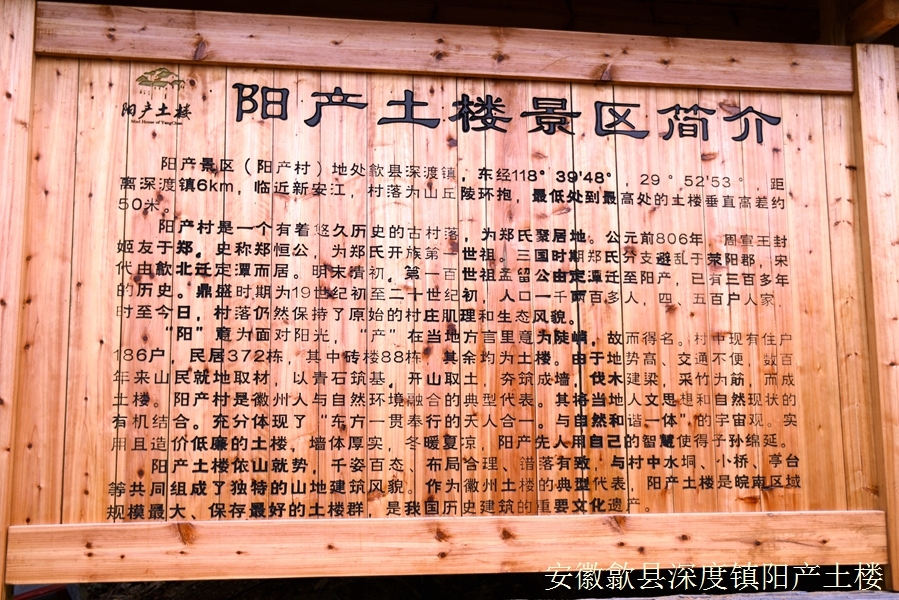 阳产土楼
Mud House of YangChan
阳产土楼景区简介
阳产景区（阳产村）地处歙县深渡镇，东经118°39'48"，29°52'53"，距
离深渡镇6km，临近新安江，村落为山丘陵环抱，最低处到最高处的土楼垂直高差约
50米。
阳产村是一个有着悠久历史的古村落，为郑氏聚居地。公元前806年，周宣王封
姬友于郑，史称郑恒公，为郑氏开族第一世祖。三国时期郑氏分支避乱于荥阳郡，宋
代由歙北迁定潭而居。明末清初，第一百世祖孟留公由定潭迁至阳产，已有三百多年
的历史。鼎盛时期为19世纪初至二十世纪初，人口一千两百多人，四、五百户人家，
时至今日，村落仍然保持了原始的村庄肌理和生态风貌。
"阳"意为面对阳光，"产"在当地方言里意为陡峭，故而得名。村中现有住户
186户，民居372栋，其中砖楼88栋，其余均为土楼。由于地势高、交通不便，数百
年来山民就地取材，以青石筑基，开山取土，夯筑成墙，伐木建梁，采竹为筋，而成
土楼。阳产村是徽州人与自然环境融合的典型代表。其将当地人文思想和自然现状的
有机结合。充分体现了"东方一贯奉行的天人合一。与自然和谐一体"的宇宙观。实
用且造价低廉的土楼，墙体厚实，冬暖夏凉，阳产先人用自己的智慧使得子孙绵延。
阳产土楼依山就势，千姿百态、布局合理、错落有致，与村中水埛、小桥、亭台
等共同组成了独特的山地建筑风貌。作为徽州土楼的典型代表，阳产土楼是皖南区域
规模最大、保存最好的土楼群，是我国历史建筑的重要文化遗产。
安徽歙县深度镇阳产土楼